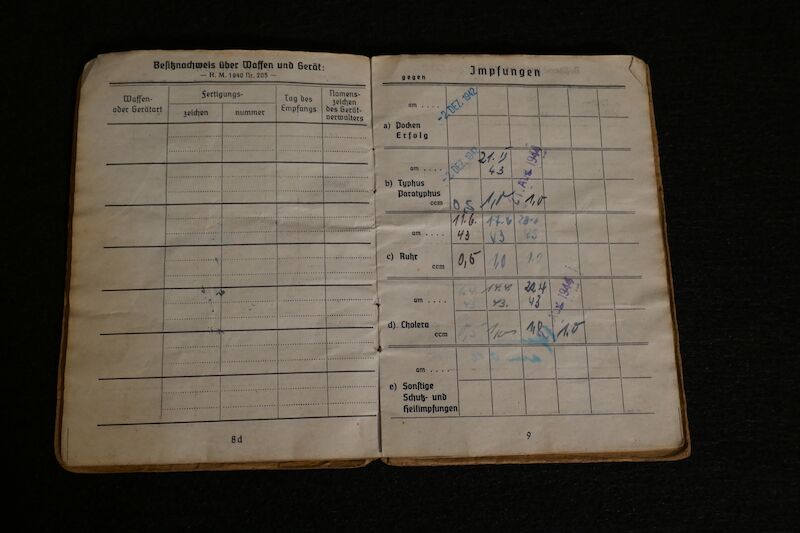 Besitznachweis über Waffen und Gerät:
— H. M. 1940 Nr. 205 —
Waffen-
oder Gerätart
Fertigungs-
zeichen
nummer
Tag des
Empfangs
Namens-
zeichen
des Gerät-
verwalters
8d
gegen
Impfungen
am ....
-2. DEZ. 1942
a) Pocken
Erfolg
am ....
-2. DEZ. 1942
21. II
43
b) Typhus
Paratyphus
ccm
0,5
1,0
1,0
am ....
11.6.
43
17.6
43
c) Ruhr
ccm
0,5
1,0
1,0
am ....
43.
22.4
43
d) Cholera
ccm
1,0
1,0
am ....
e) Sonstige
Schutz- und
Heilimpfungen
9